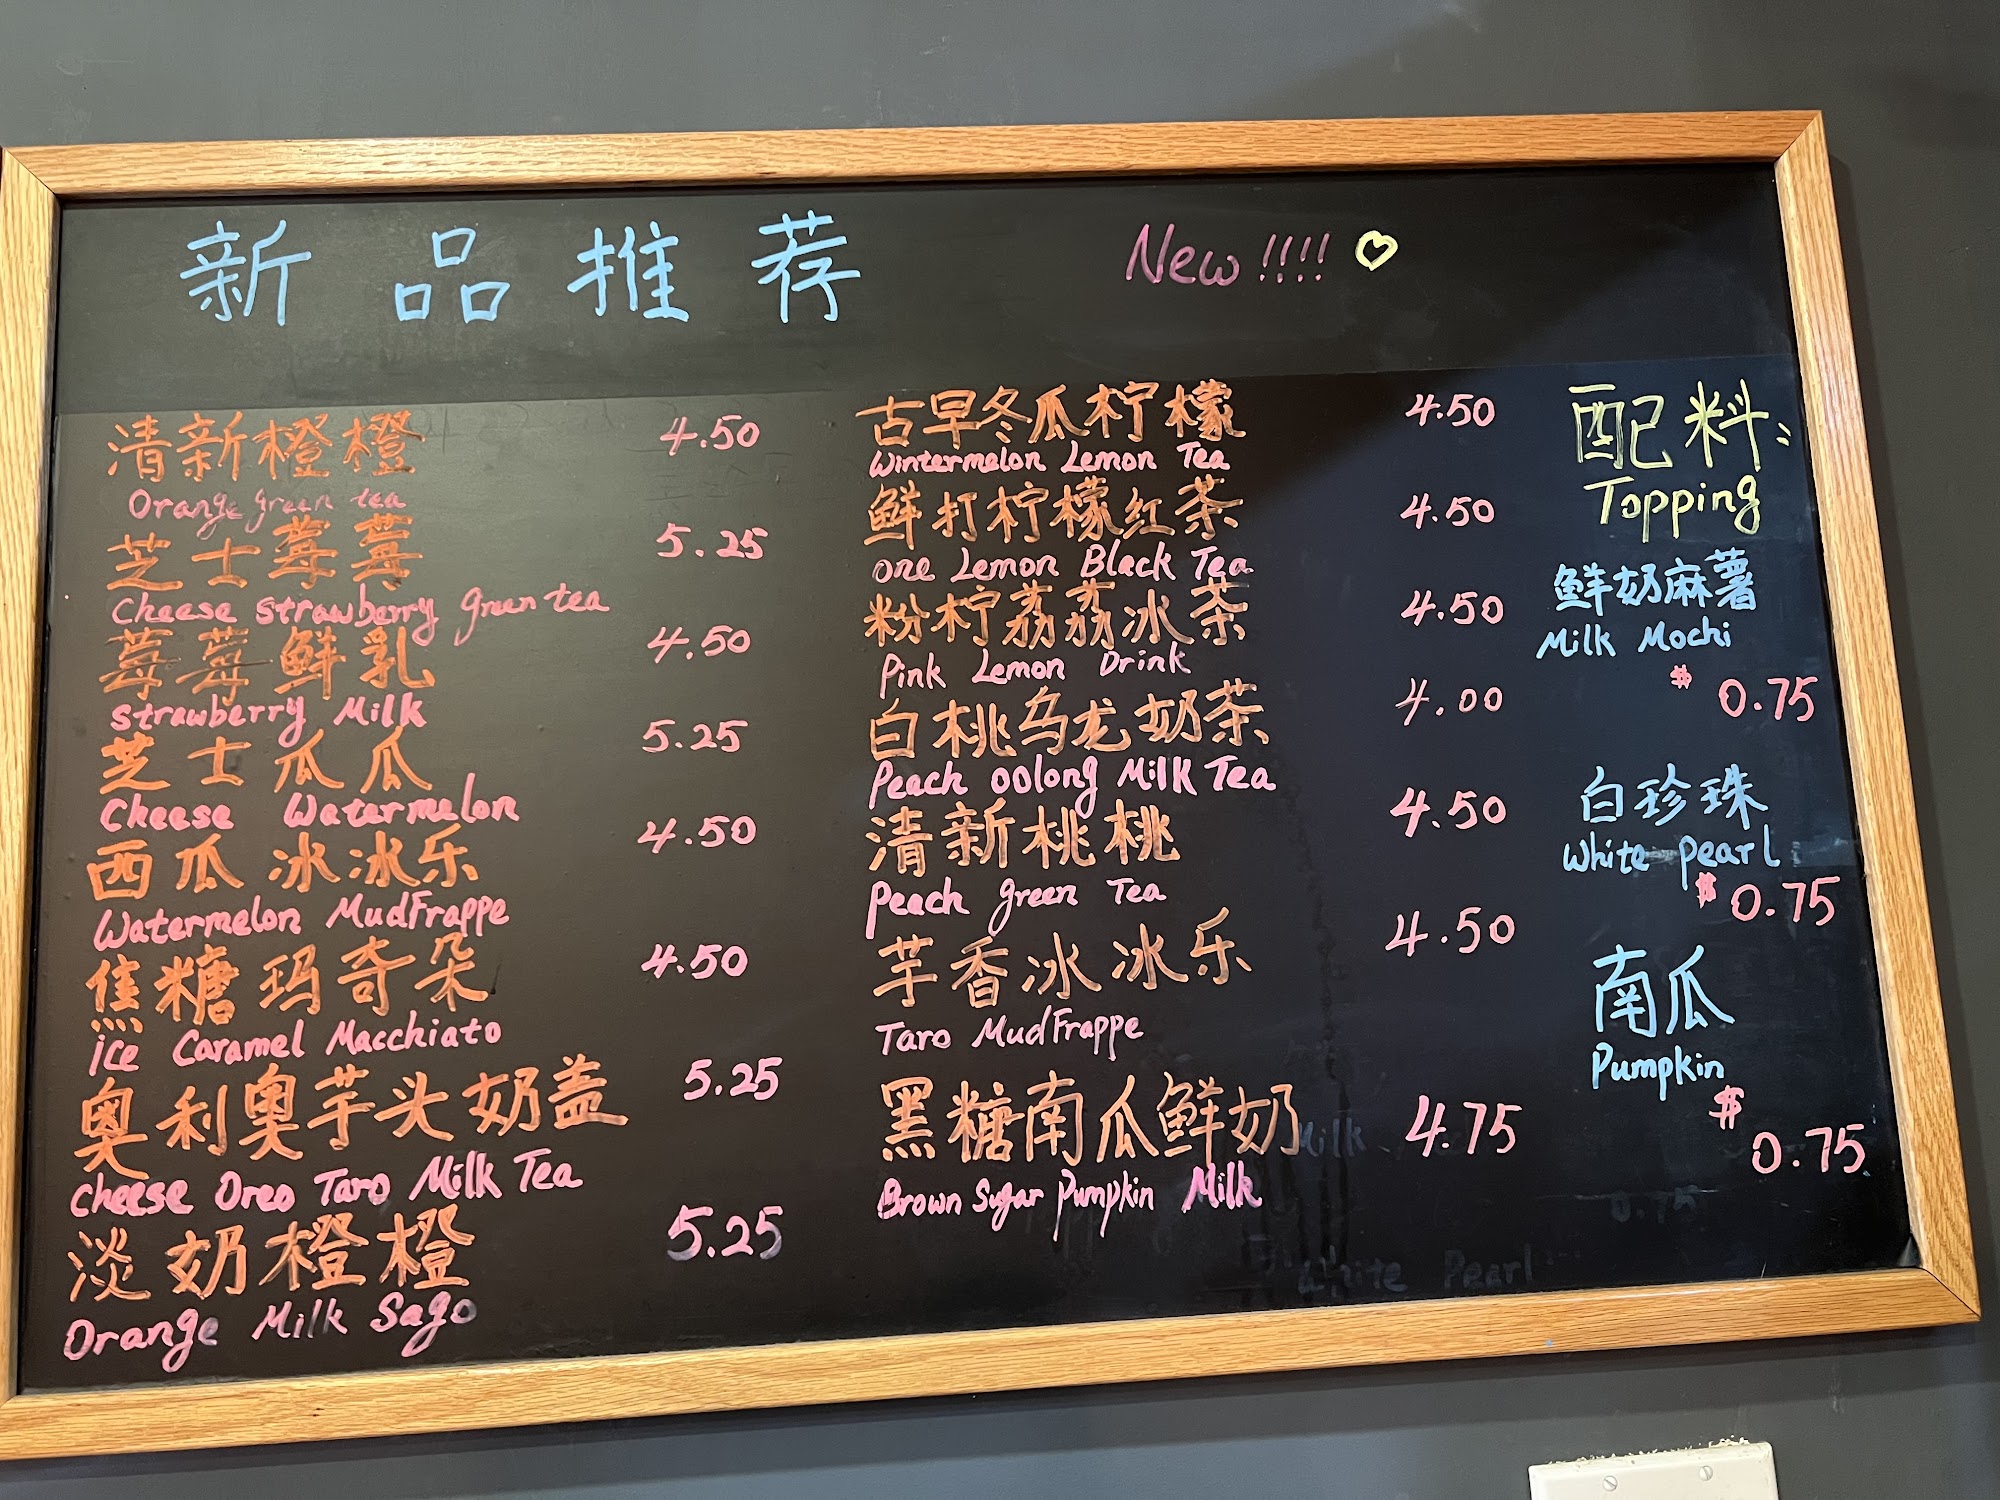 新品推荐 New!!!! ♡
清新橙橙 4.50
Orange green tea
芝士莓莓 5.25
Cheese Strawberry green tea
莓莓鲜乳 4.50
Strawberry Milk
芝士瓜瓜 5.25
Cheese Watermelon
西瓜冰冰乐 4.50
Watermelon MudFrappe
焦糖玛奇朵 4.50
ice Caramel Macchiato
奥利奥芋头奶盖 5.25
Cheese Oreo Taro Milk Tea
淡奶橙橙 5.25
Orange Milk Sago
古早冬瓜柠檬 4.50
Wintermelon Lemon Tea
鲜打柠檬红茶 4.50
one Lemon Black Tea
粉柠荔荔冰茶 4.50
Pink Lemon Drink
白桃乌龙奶茶 4.00
Peach oolong Milk Tea
清新桃桃 4.50
Peach green Tea
芋香冰冰乐 4.50
Taro MudFrappe
黑糖南瓜鲜奶 4.75
Brown Sugar Pumpkin Milk
配料:
Topping
鲜奶麻薯
Milk Mochi
$ 0.75
白珍珠
White pearl
$ 0.75
南瓜
Pumpkin
$ 0.75
Milk
0.75
White Pearl